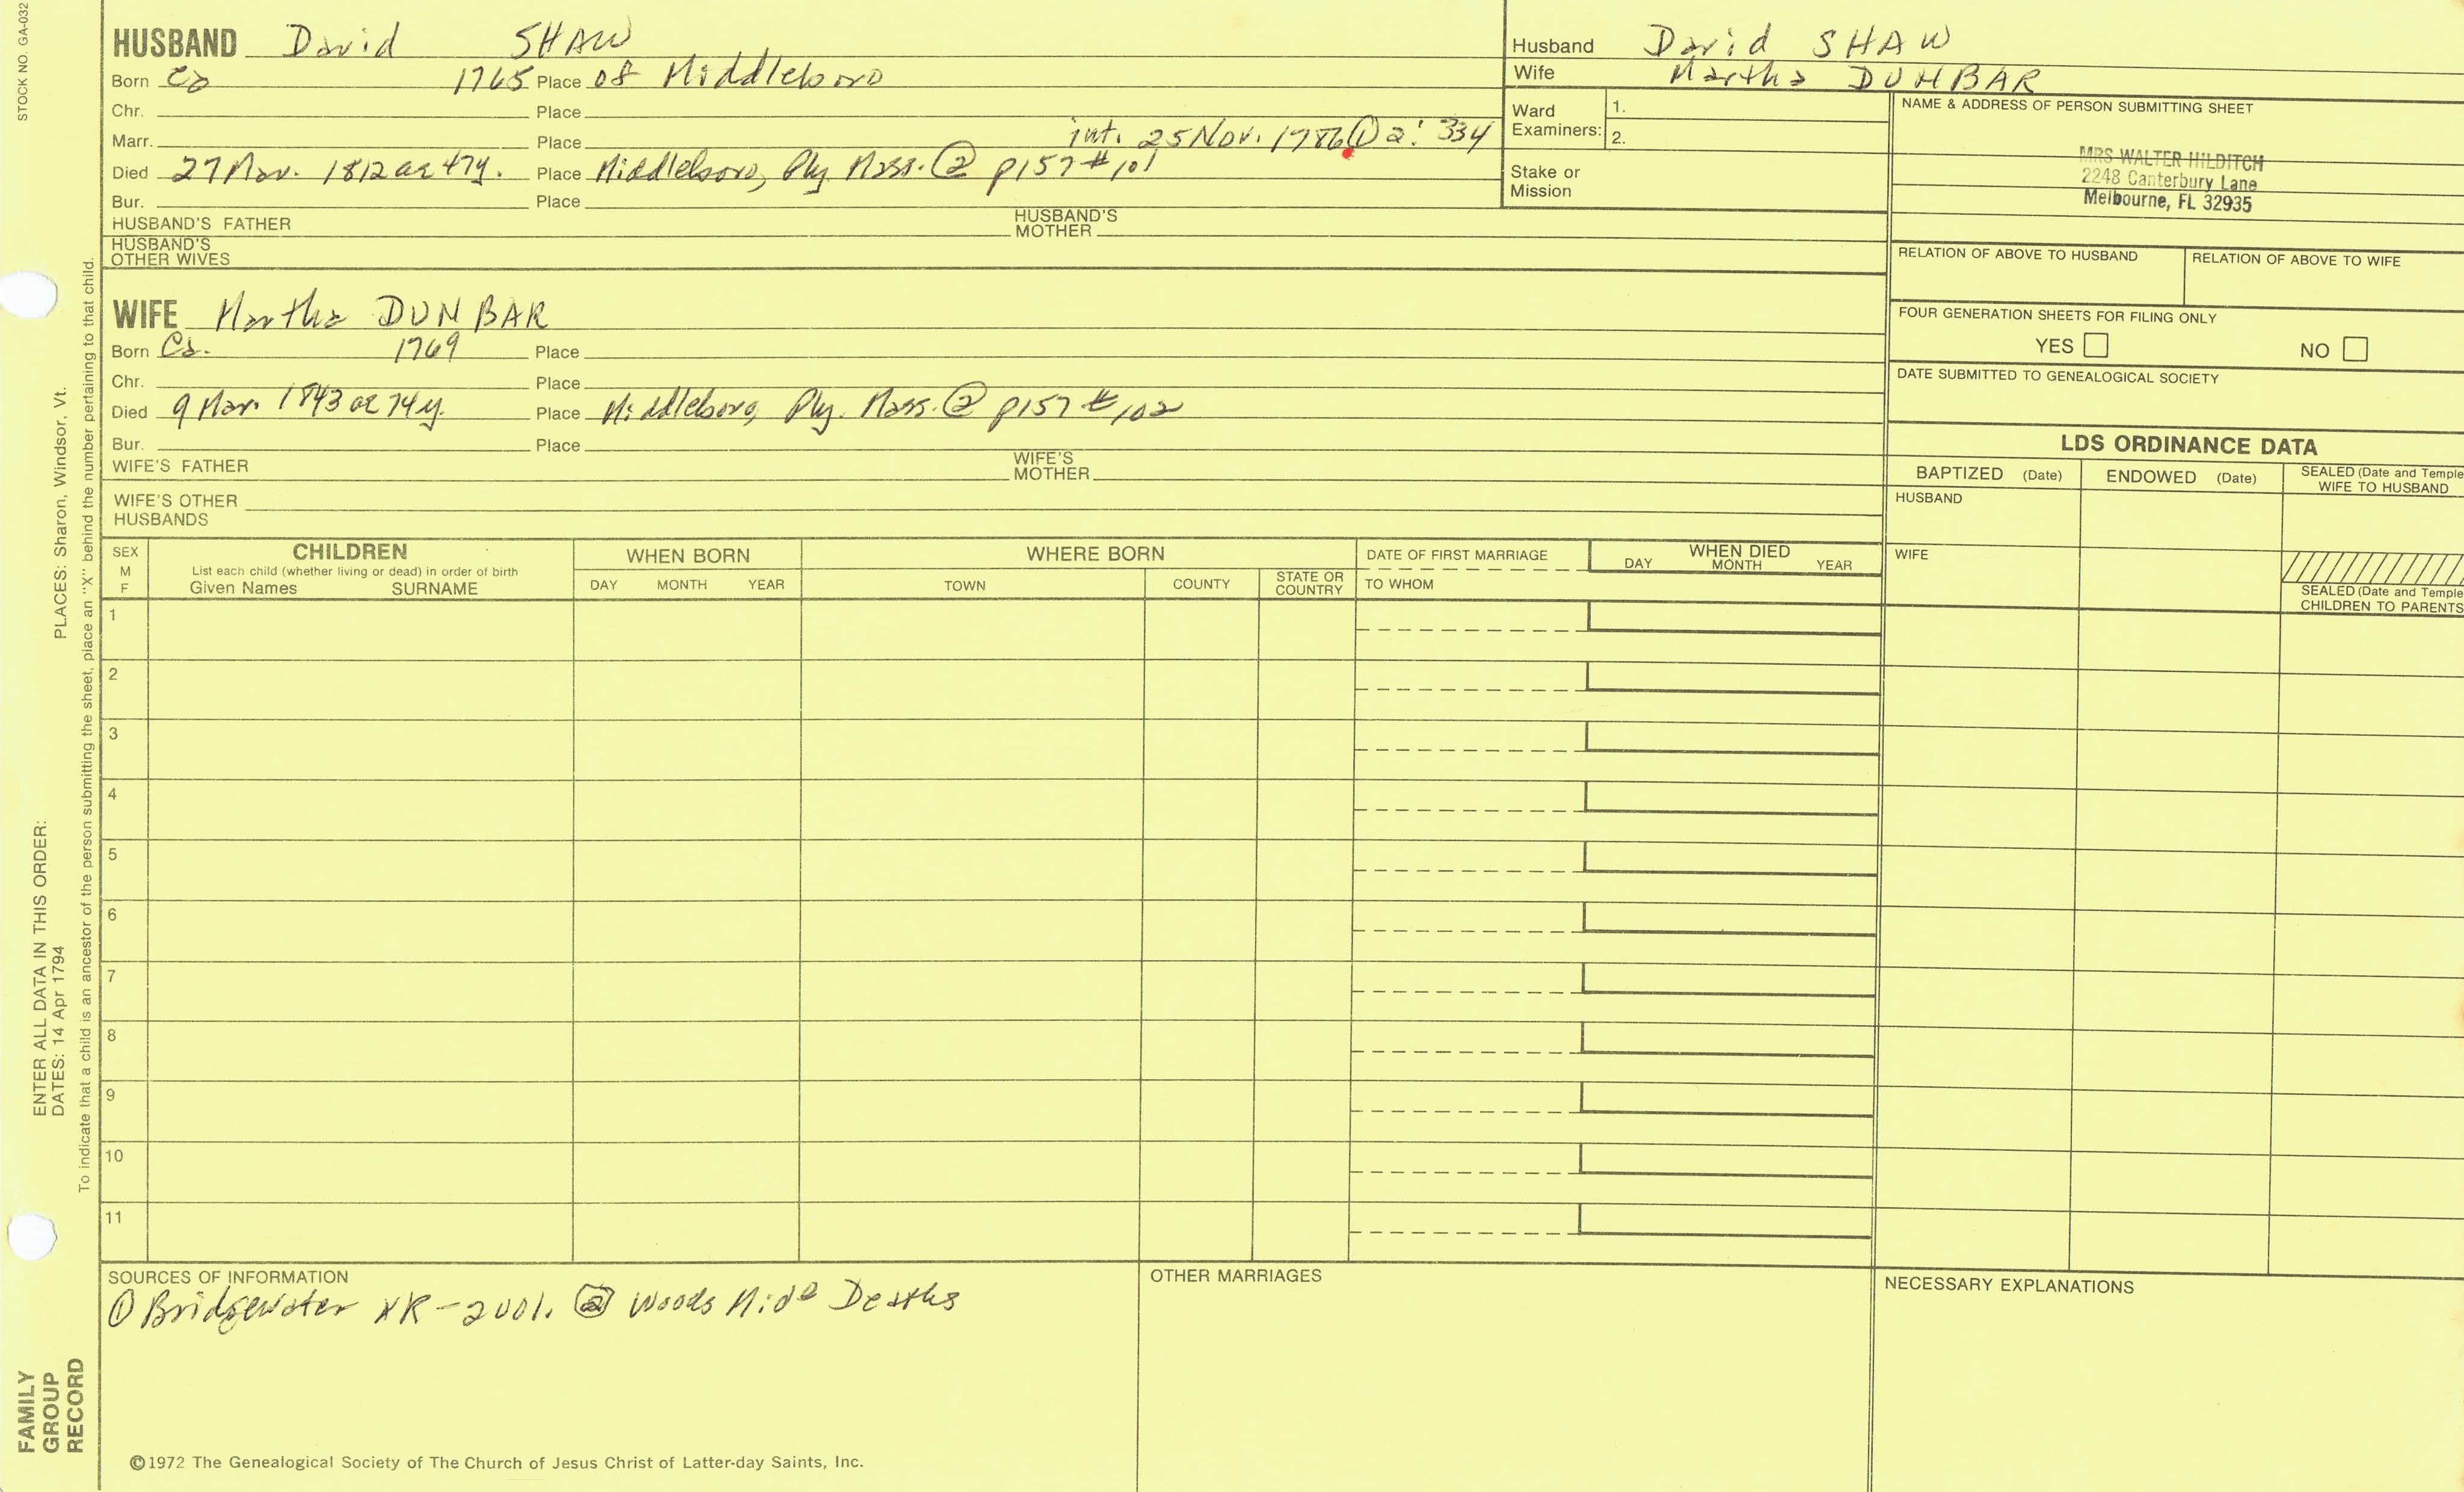 STOCK NO. GA-032
HUSBAND David SHAW
Born Ca 1765 Place of Middleboro
Chr. Place
Marr. Place int. 25 Nov. 1786 ① 2: 334
Died 27 Mar. 1812 ae 47y. Place Middleboro, Ply. Mass. ② p157 #101
Bur. Place
HUSBAND'S FATHER HUSBAND'S MOTHER
HUSBAND'S OTHER WIVES
Husband David SHAW
Wife Martha DUNBAR
Ward Examiners: 1.
2.
Stake or Mission
NAME & ADDRESS OF PERSON SUBMITTING SHEET
MRS WALTER HILDITCH
2248 Canterbury Lane
Melbourne, FL 32935
RELATION OF ABOVE TO HUSBAND RELATION OF ABOVE TO WIFE
FOUR GENERATION SHEETS FOR FILING ONLY
YES NO
DATE SUBMITTED TO GENEALOGICAL SOCIETY
WIFE Martha DUNBAR
Born Ca. 1769 Place
Chr. Place
Died 9 Mar. 1843 ae 74y. Place Middleboro, Ply. Mass. ② p157 #102
Bur. Place
WIFE'S FATHER WIFE'S MOTHER
WIFE'S OTHER HUSBANDS
LDS ORDINANCE DATA
BAPTIZED (Date) ENDOWED (Date) SEALED (Date and Temple
WIFE TO HUSBAND
HUSBAND
WIFE
SEALED (Date and Temple
CHILDREN TO PARENTS
SEX M F
CHILDREN
List each child (whether living or dead) in order of birth
Given Names SURNAME
WHEN BORN
DAY MONTH YEAR
WHERE BORN
TOWN COUNTY STATE OR COUNTRY
DATE OF FIRST MARRIAGE
TO WHOM
WHEN DIED
DAY MONTH YEAR
1
2
3
4
5
6
7
8
9
10
11
SOURCES OF INFORMATION
① Bridgewater VR-2001. ② Woods Mid° Deaths
OTHER MARRIAGES
NECESSARY EXPLANATIONS
©1972 The Genealogical Society of The Church of Jesus Christ of Latter-day Saints, Inc.
FAMILY GROUP RECORD
ENTER ALL DATA IN THIS ORDER:
DATES: 14 Apr 1794
PLACES: Sharon, Windsor, Vt.
To indicate that a child is an ancestor of the person submitting the sheet, place an "X" behind the number pertaining to that child.